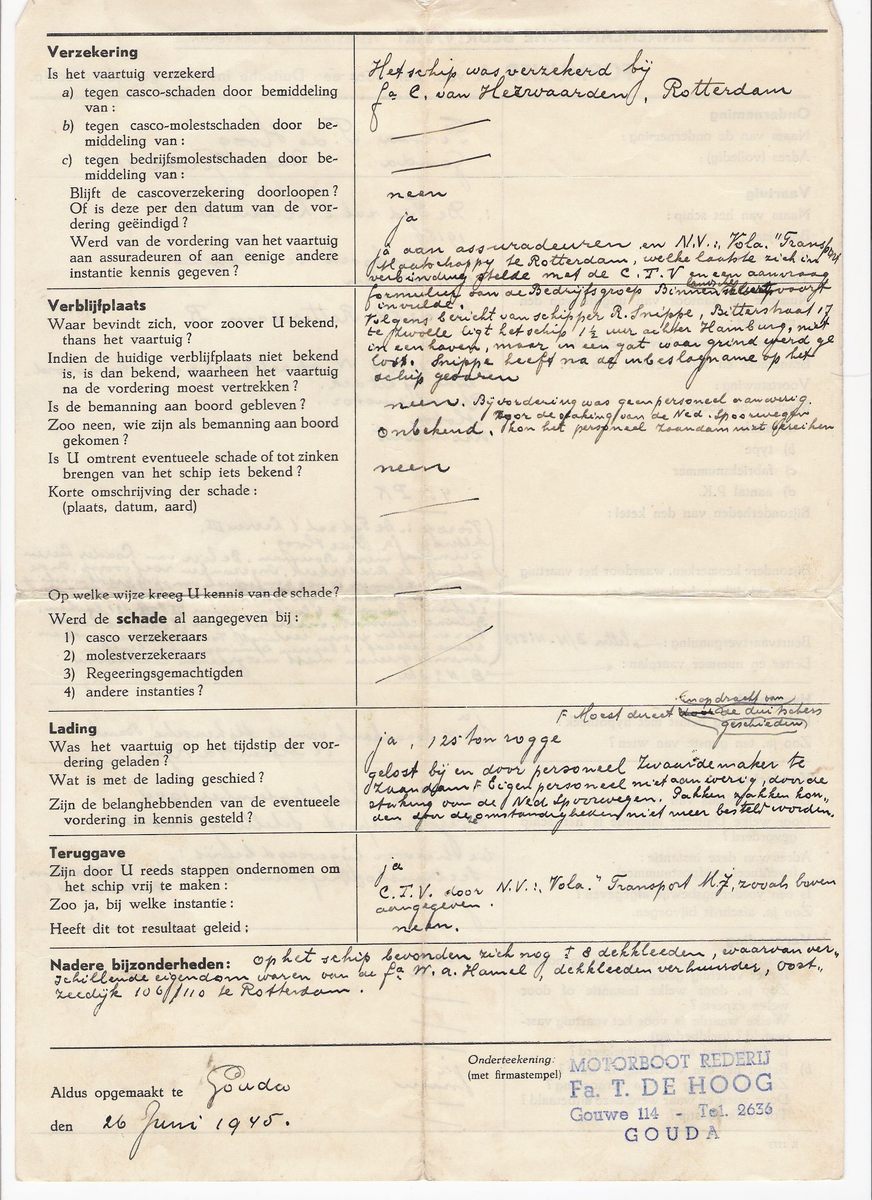 Verzekering
Is het vaartuig verzekerd
a) tegen casco-schaden door bemiddeling
van :
Het schip was verzekerd bij
fa C. van Hezewaarden, Rotterdam
b) tegen casco-molestschaden door be-
middeling van :
c) tegen bedrijfsmolestschaden door be-
middeling van :
Blijft de cascoverzekering doorloopen ?
neen
Of is deze per den datum van de vor-
dering geëindigd ?
ja
Werd van de vordering van het vaartuig
aan assuradeuren of aan eenige andere
instantie kennis gegeven ?
ja aan assuradeuren en N.V. "Vola." Transport
Maatschappy te Rotterdam, welke laatste zich in
verbinding stelde met de C.T.V en een aanvraag
formulier van de Bedrijfsgroep Binnen
invulde.
Verblijfplaats
Waar bevindt zich, voor zoover U bekend,
thans het vaartuig ?
Indien de huidige verblijfplaats niet bekend
is, is dan bekend, waarheen het vaartuig
na de vordering moest vertrekken ?
Volgens bericht van schipper R. Snippe, Bitterstraat 17
te Zwolle ligt het schip 1½ uur achter Hamburg, niet
in een haven, maar in een gat waar grind werd ge
lost. Snippe heeft na de inbeslagname op het
schip gevaren
Is de bemanning aan boord gebleven ?
neen. By vordering was geen personeel aanwezig.
Zoo neen, wie zijn als bemanning aan boord
gekomen ?
Door de staking van de Ned. Spoorwegen
onbekend. kon het personeel Zaandam niet bereiken
Is U omtrent eventueele schade of tot zinken
brengen van het schip iets bekend ?
neen
Korte omschrijving der schade :
(plaats, datum, aard)
Op welke wijze kreeg U kennis van de schade ?
Werd de schade al aangegeven bij :
1) casco verzekeraars
2) molestverzekeraars
3) Regeeringsgemachtigden
4) andere instanties ?
En opdracht van
F Moest direct door de duitschers
geschieden
Lading
Was het vaartuig op het tijdstip der vor-
dering geladen ?
ja, 125 ton rogge
Wat is met de lading geschied ?
Zijn de belanghebbenden van de eventueele
vordering in kennis gesteld ?
gelost bij en door personeel Zwaardemaker te
Zaandam F Eigen personeel niet aanwezig, door de
staking van de Ned Spoorwegen. Pakken zakken kon-
den door de omstandigheden niet meer besteld worden.
Teruggave
Zijn door U reeds stappen ondernomen om
het schip vrij te maken :
ja
Zoo ja, bij welke instantie :
C.T.V. door N.V. "Vola." Transport Mij, zooals boven
aangegeven.
Heeft dit tot resultaat geleid ;
neen.
Nadere bijzonderheden: Op het schip bevonden zich nog ± 8 dekkleeden, waarvan ver-
schillende eigendom waren van de fa W. a. Hamel, dekkleeden verhuurder, Oost-
zeedijk 106/110 te Rotterdam.
Aldus opgemaakt te Gouda
den 26 Juni 1945.
Onderteekening:
(met firmastempel)
MOTORBOOT REDERIJ
Fa. T. DE HOOG
Gouwe 114 - Tel. 2636
GOUDA